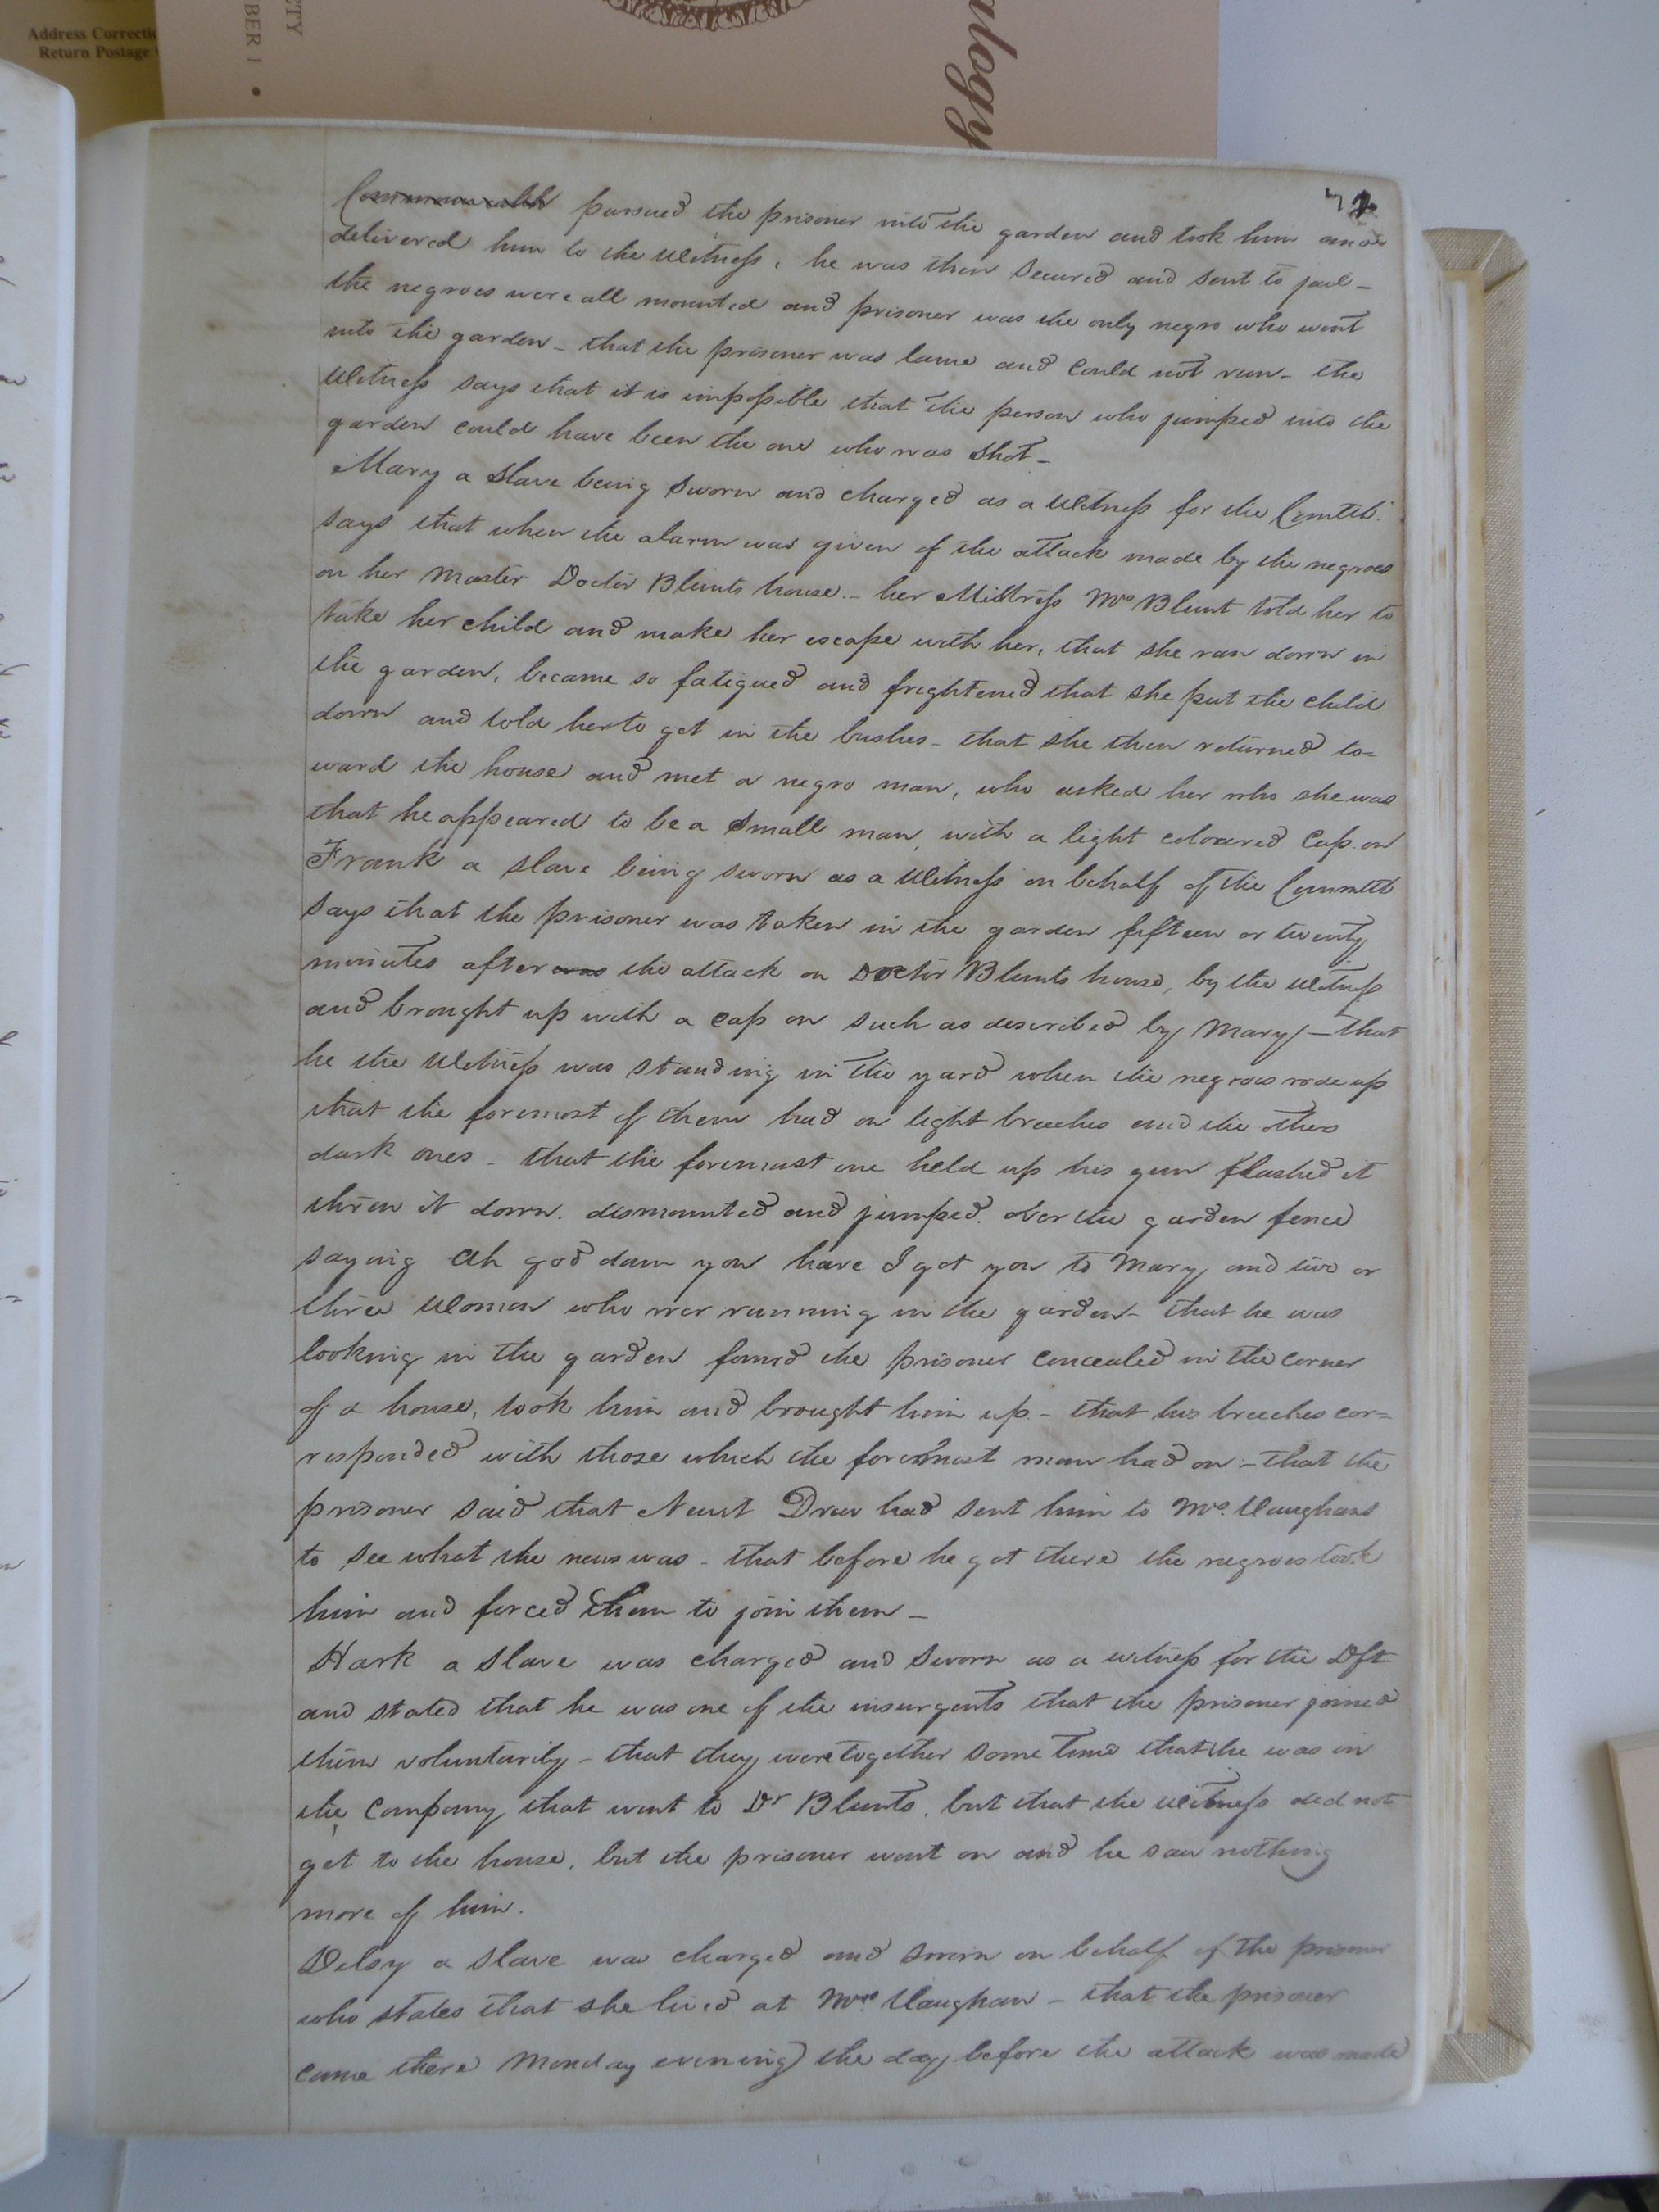 Address Correctio
Return Postage
BER 1 •
logy
Commonwealth pursued the prisoner into the garden and took him and
delivered him to the Witness, he was then secured and sent to jail -
the negroes were all mounted and prisoner was the only negro who went
into the garden - that the prisoner was lame and could not run - the
Witness says that it is impossible that the person who jumped into the
garden could have been the one who was shot -
Mary a slave being sworn and charged as a Witness for the Comtth.
says that when the alarm was given of the attack made by the negroes
on her Master Doctor Blunts house - her Mistress Mrs Blunt told her to
take her child and make her escape with her, that she ran down in
the garden, became so fatigued and frightened that she put the child
down and told her to get in the bushes - that she then returned to=
ward the house and met a negro man, who asked her who she was
that he appeared to be a small man, with a light coloured Cap on
Frank a slave being sworn as a Witness on behalf of the Commtt
says that the prisoner was taken in the garden fifteen or twenty
minutes after was the attack on Doctor Blunts house, by the Witness
and brought up with a cap on such as described by Mary - that
he the Witness was standing in the yard when the negroes rode up
that the foremost of them had on light breeches and the others
dark ones - that the foremost one held up his gun flashed it
threw it down. dismounted and jumped over the garden fence
saying Ah god dam you have I got you to Mary and two or
three Women who wer running in the garden - that he was
looking in the garden found the prisoner concealed in the corner
of a house, took him and brought him up - that his breeches cor=
responded with those which the foremost man had on - that the
prisoner said that Newit Drew had sent him to Mrs. Vaughans
to see what the news was - that before he got there the negroes took
him and forced them to join them -
Hark a slave was charged and sworn as a witness for the Dft
and stated that he was one of the insurgents that the prisoner joined
them voluntarily - that they were together some time that he was in
the Company that went to Dr Blunts, but that the witness did not
get to the house, but the prisoner went on and he saw nothing
more of him.
Delsy a slave was charged and sworn on behalf of the prisoner
who states that she lived at Mrs. Vaughan - that the prisoner
came there Monday evening the day before the attack was made